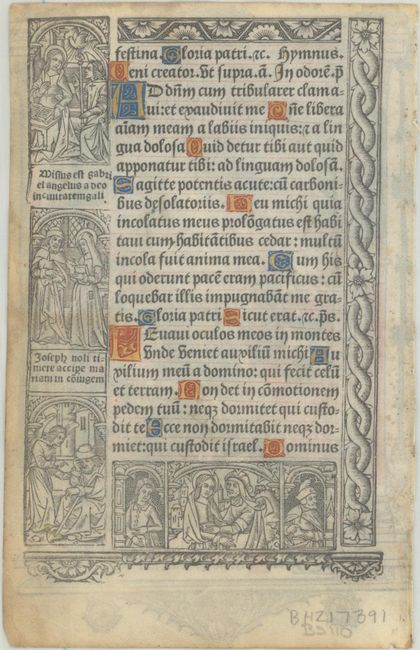 festina. Gloria patri. ⁊c. Hymnus.
Ueni creator. Vt supra. ã. In odorẽ. p̃
AD dñm cum tribularer clama-
ui: et exaudiuit me Dñe libera
aĩam meam a labiis iniquis: ⁊ a lin
gua dolosa Quid detur tibi aut quid
apponatur tibi: ad linguam dolosã.
Sagitte potentis acute: cũ carboni-
bus desolatoriis. Heu michi quia
incolatus meus prolõgatus est habi
taui cum habitãtibus cedar: multũ
incola fuit anima mea. Cum his
qui oderunt pacẽ eram pacificus: cũ
loquebar illis impugnabãt me gra-
tis. Gloria patri Sicut erat. ⁊c. p̃s.
LEuaui oculos meos in montes
Vnde veniet auxiliũ michi Au
xilium meũ a domino: qui fecit celũ
et terram. Non det in cõmotionem
pedem tuũ: neq̃ dormitet qui custo-
dit te Ecce non dormitabit neq̃ dor-
miet: qui custodit israel. Dominus
Missus est gabri
el angelus a deo
in ciuitatem gali.
Joseph noli ti
mere accipe ma
riam in cõiugem
BHZ17391
B3110